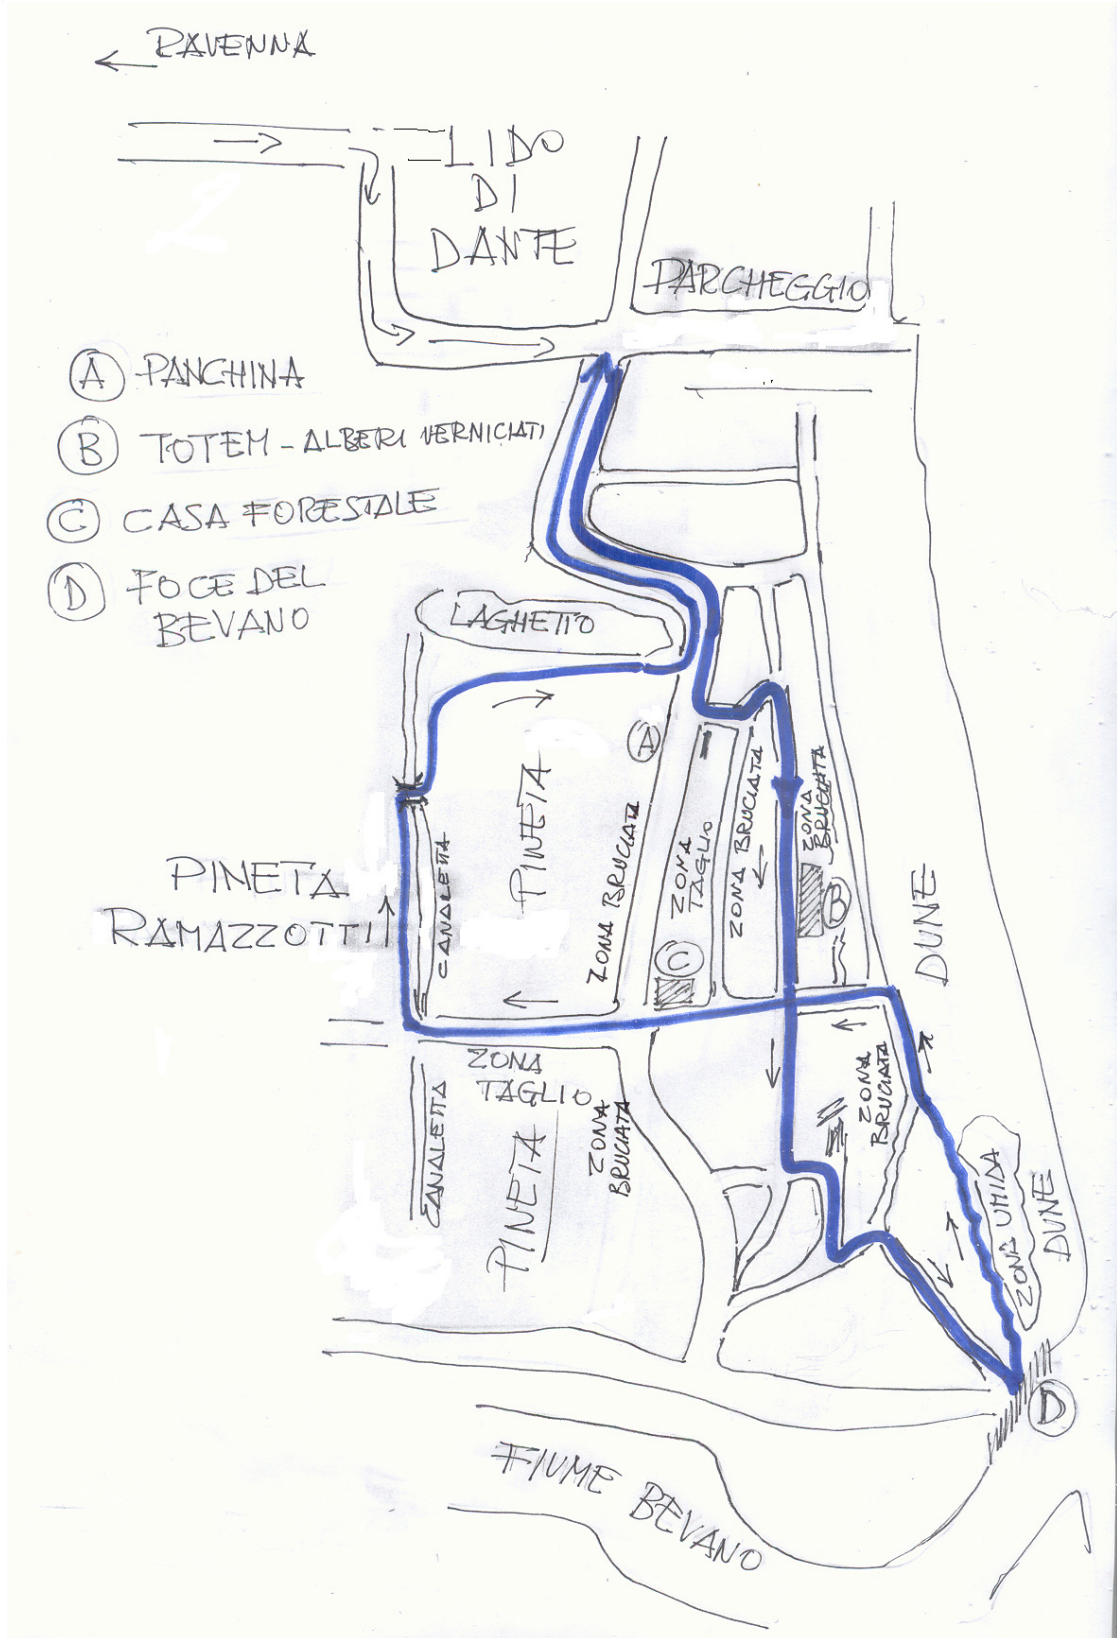 RAVENNA
LIDO
DI
DANTE
PARCHEGGIO
A PANCHINA
B TOTEM - ALBERI VERNICIATI
C CASA FORESTALE
D FOCE DEL
BEVANO
LAGHETTO
A
PINETA
ZONA BRUCIATA
ZONA
TAGLIO
ZONA BRUCIATA
ZONA
BRUCIATA
CANALETTA
PINETA
RAMAZZOTTI
B
C
DUNE
ZONA
TAGLIO
CANALETTA
PINETA
ZONA
BRUCIATA
ZONA
BRUCIATA
ZONA UMIDA
DUNE
D
FIUME BEVANO